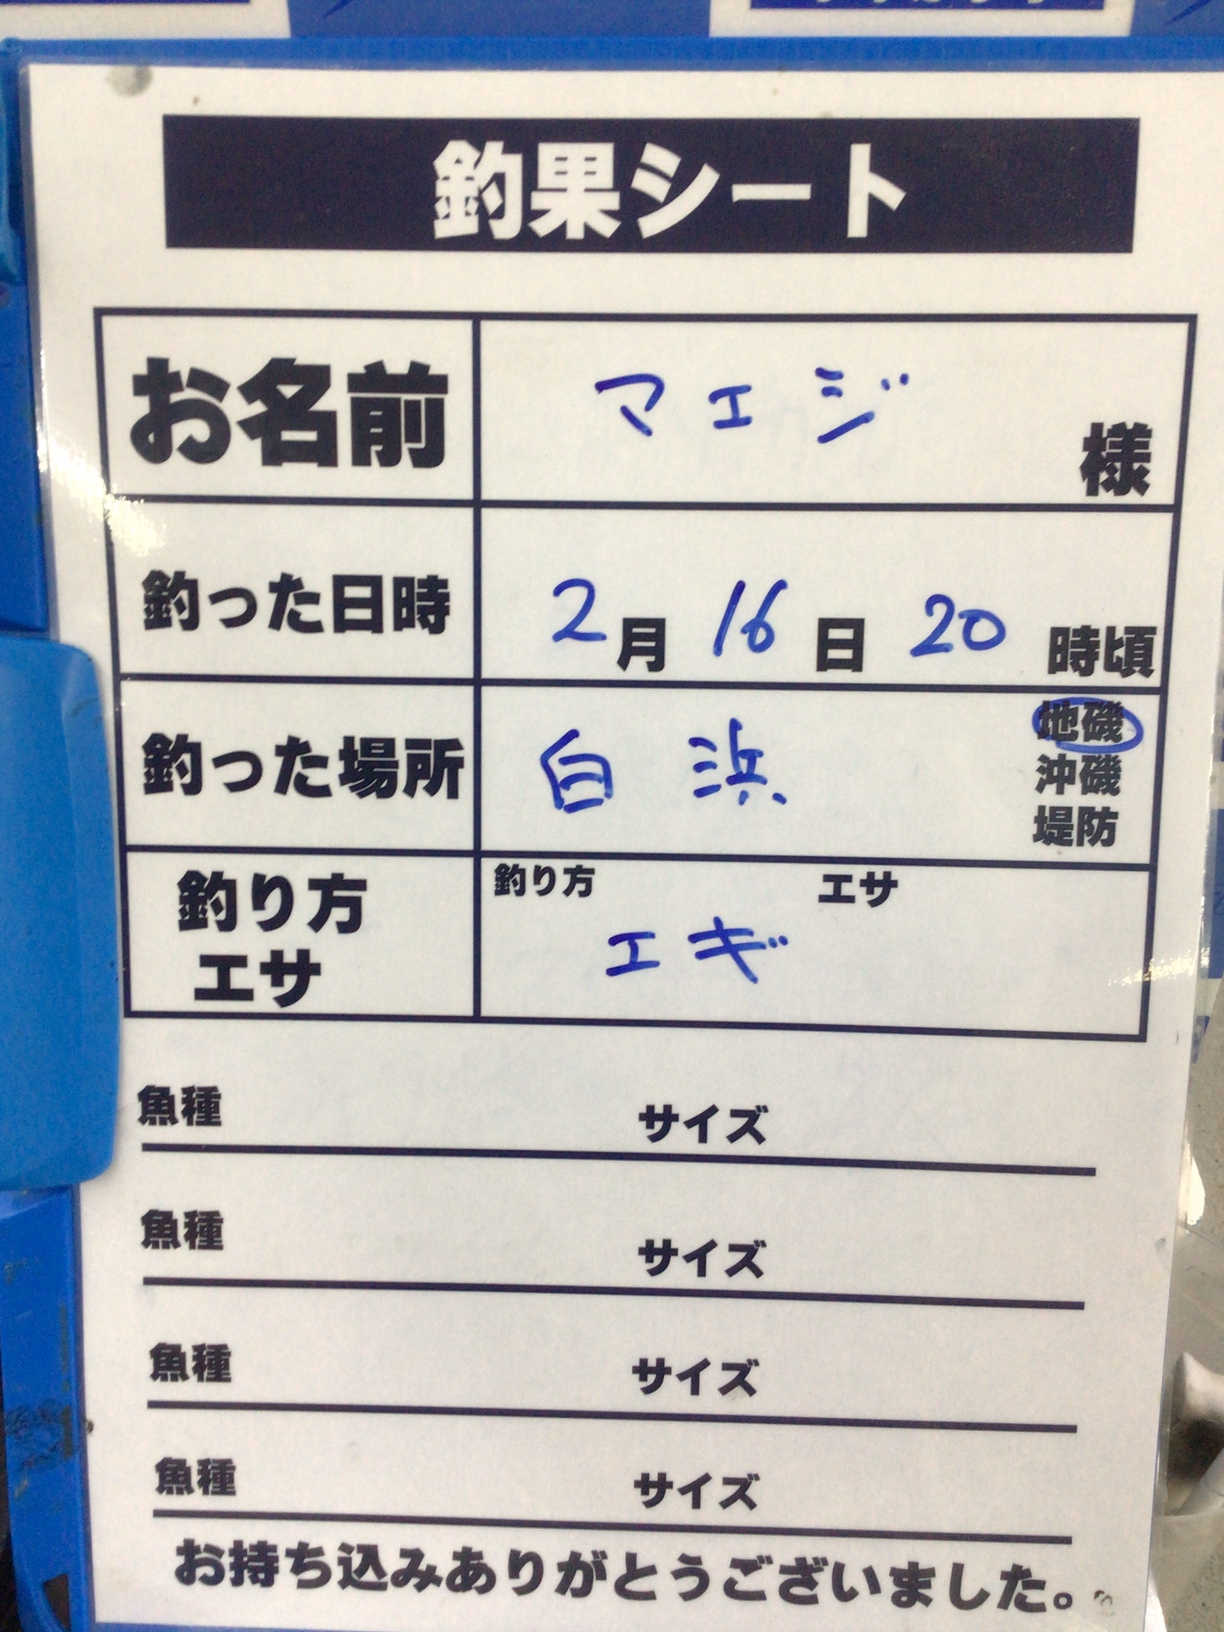 釣果シート
お名前 マエジ 様
釣った日時 2月 16日 20時頃
釣った場所 白浜 地磯
沖磯
堤防
釣り方 エサ
釣り方 エサ
エギ
魚種 サイズ
魚種 サイズ
魚種 サイズ
魚種 サイズ
お持ち込みありがとうございました。